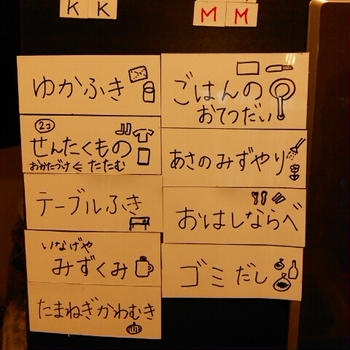 K K
ゆかふき
2コ
せんたくもの
おかたづけ ⇐ たたむ
テーブルふき
いなげや
みずくみ
たまねぎかわむき
M M
ごはんの
おてつだい
あさのみずやり
おはしならべ
ゴミだし